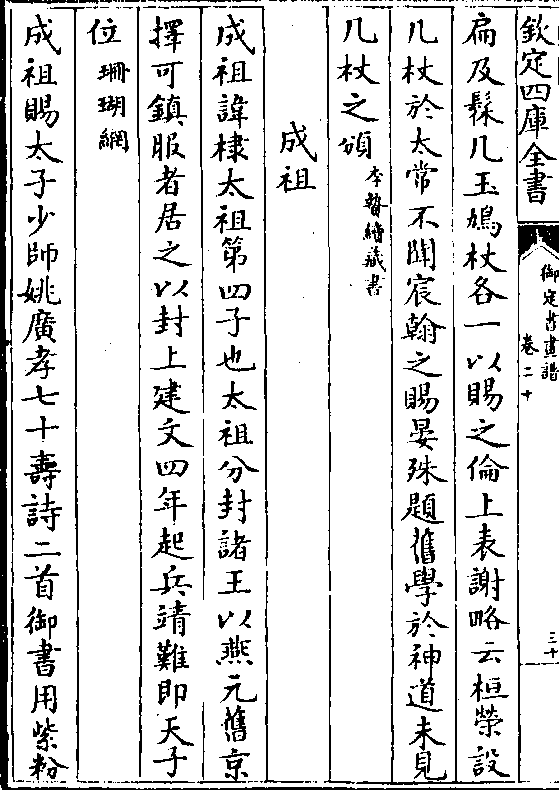 欽定四庫全書
御定書畫譜
卷二十
三十
扁及髹几玉鳩杖各一以賜之倫上表謝略云桓榮設
几杖於太常不聞宸翰之賜晏殊題舊學於神道未見
几杖之頒李贄續藏書
成祖
成祖諱棣太祖第四子也太祖分封諸王以燕元舊京
擇可鎮服者居之以封上建文四年起兵靖難即天子
位珊瑚網
成祖賜太子少師姚廣孝七十壽詩二首御書用紫粉